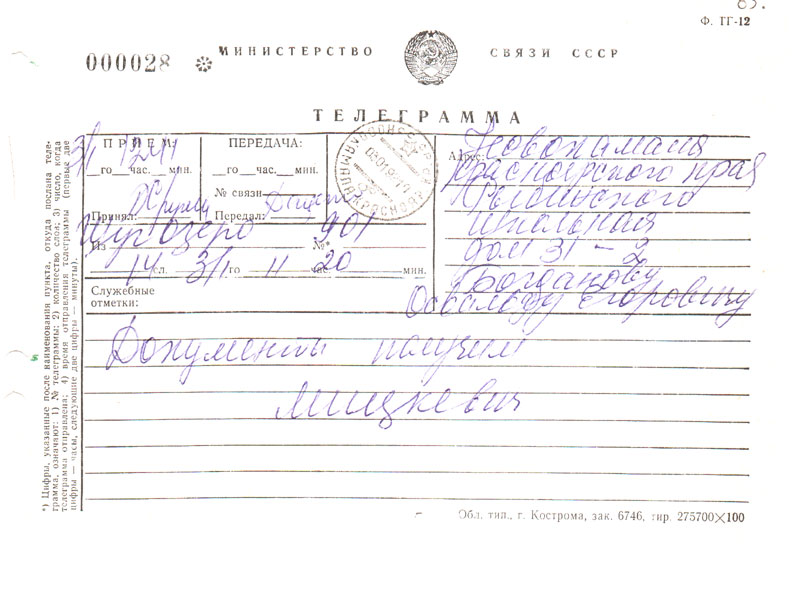 85.
Ф. ТГ-12
000028
МИНИСТЕРСТВО СВЯЗИ СССР
ТЕЛЕГРАММА
ПРИЕМ:
3/1 12 11
__го __час. __мин.
Принял:
ПЕРЕДАЧА:
__го __час. __мин.
№ связи
Передал:
Из Шугозеро №* 901
14 сл. 3/1 го 11 час. 20 мин.
Служебные
отметки:
Адрес: Новокамала
Красноярского края
Рыбинского
Школьная
дом 31 – 2
Богданову
Освальду Егоровичу
Документы получил
Мицкевич
*) Цифры, указанные после наименования пункта, откуда послана теле-
грамма, означают: 1) № телеграммы; 2) количество слов; 3) число, когда
телеграмма отправлена; 4) время отправления телеграммы (первые две
цифры — часы, следующие две цифры — минуты).
Обл. тип., г. Кострома, зак. 6746, тир. 275700×100